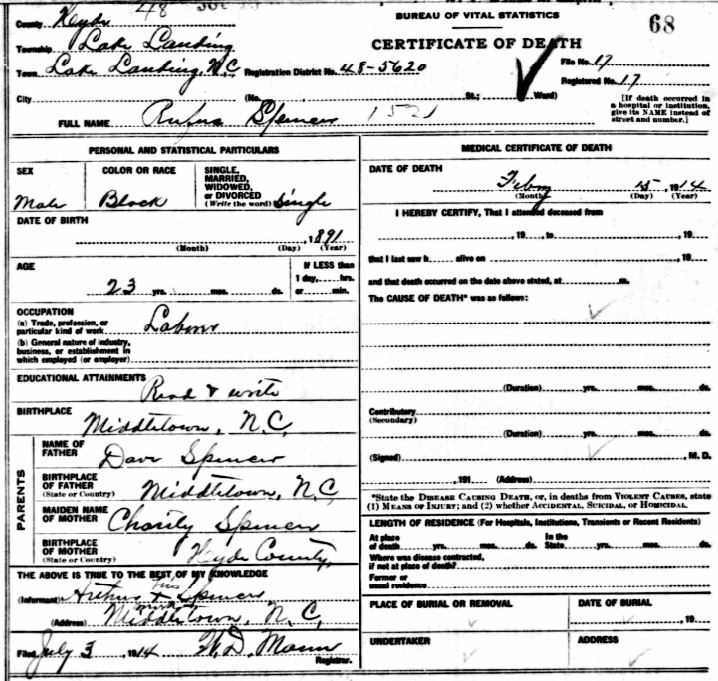 BUREAU OF VITAL STATISTICS
CERTIFICATE OF DEATH
68
County Hyde 48
Township Lake Landing
Town Lake Landing, N.C. Registration District No. 48-5620
File No. 17
Registered No. 17
City (No. St.; Ward)
[If death occurred in a hospital or institution, give its NAME instead of street and number.]
FULL NAME Rufus Spencer 1521
PERSONAL AND STATISTICAL PARTICULARS
SEX
Male
COLOR OR RACE
Black
SINGLE, MARRIED, WIDOWED, or DIVORCED (Write the word) Single
DATE OF BIRTH
, 1891
(Month) (Day) (Year)
AGE
23 yrs. mos. ds.
If LESS than 1 day, hrs. or min.
OCCUPATION
(a) Trade, profession, or particular kind of work Labour
(b) General nature of industry, business, or establishment in which employed (or employer)
EDUCATIONAL ATTAINMENTS Read & write
BIRTHPLACE Middletown, N.C.
PARENTS
NAME OF FATHER Dave Spencer
BIRTHPLACE OF FATHER (State or Country) Middletown, N.C.
MAIDEN NAME OF MOTHER Charity Spencer
BIRTHPLACE OF MOTHER (State or Country) Hyde County,
THE ABOVE IS TRUE TO THE BEST OF MY KNOWLEDGE
(Informant) Arthur his x mark Spencer
(Address) Middletown, N.C.
Filed July 3, 1914 W.D. Mann
Registrar.
MEDICAL CERTIFICATE OF DEATH
DATE OF DEATH
Febry 15, 1914
(Month) (Day) (Year)
I HEREBY CERTIFY, That I attended deceased from
, 19 , to , 19
that I last saw h alive on , 19
and that death occurred on the date above stated, at m.
The CAUSE OF DEATH* was as follows:
(Duration) yrs. mos. ds.
Contributory
(Secondary)
(Duration) yrs. mos. ds.
(Signed) , M. D.
, 191 (Address)
*State the DISEASE CAUSING DEATH, or, in deaths from VIOLENT CAUSES, state
(1) MEANS OF INJURY; and (2) whether ACCIDENTAL, SUICIDAL, or HOMICIDAL.
LENGTH OF RESIDENCE (For Hospitals, Institutions, Transients or Recent Residents)
At place of death yrs. mos. ds. In the State yrs. mos. ds.
Where was disease contracted, if not at place of death?
Former or usual residence
PLACE OF BURIAL OR REMOVAL
DATE OF BURIAL
, 19
UNDERTAKER
ADDRESS